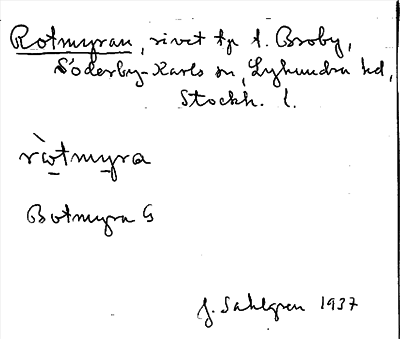 Rotmyran, rivet tp t. Broby,
Söderby-Karls sn, Lyhundra hd,
Stockh. l.
ròtmyra
Botmyra G
J. Sahlgren 1937